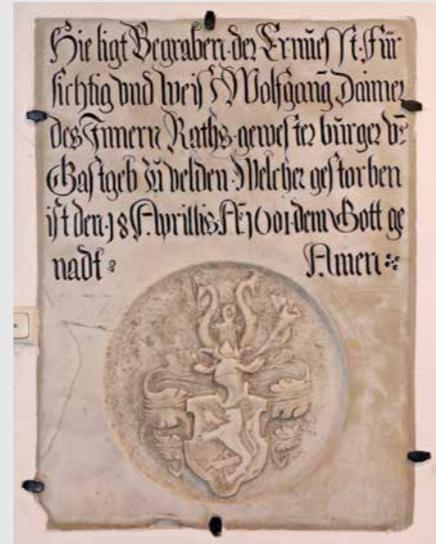 Hie ligt Begraben der Ernuesst Für
sichtig vnd weiß Wolfgang Daimer
des Innern Raths gewester burger vn̄
Gastgeb zu velden Welcher gestorben
ist den 18 Aprillis A 1601 dem Gott ge
nadt Amen